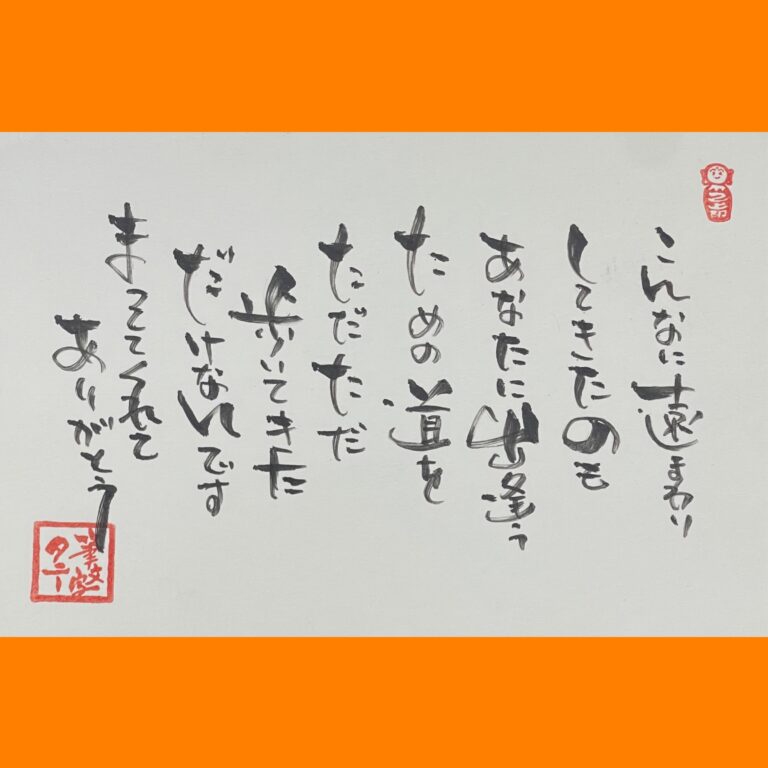 こんなに遠まわり
してきたのも
あなたに出逢う
ための道を
ただただ
歩いてきた
だけなんです
まっててくれて
ありがとう